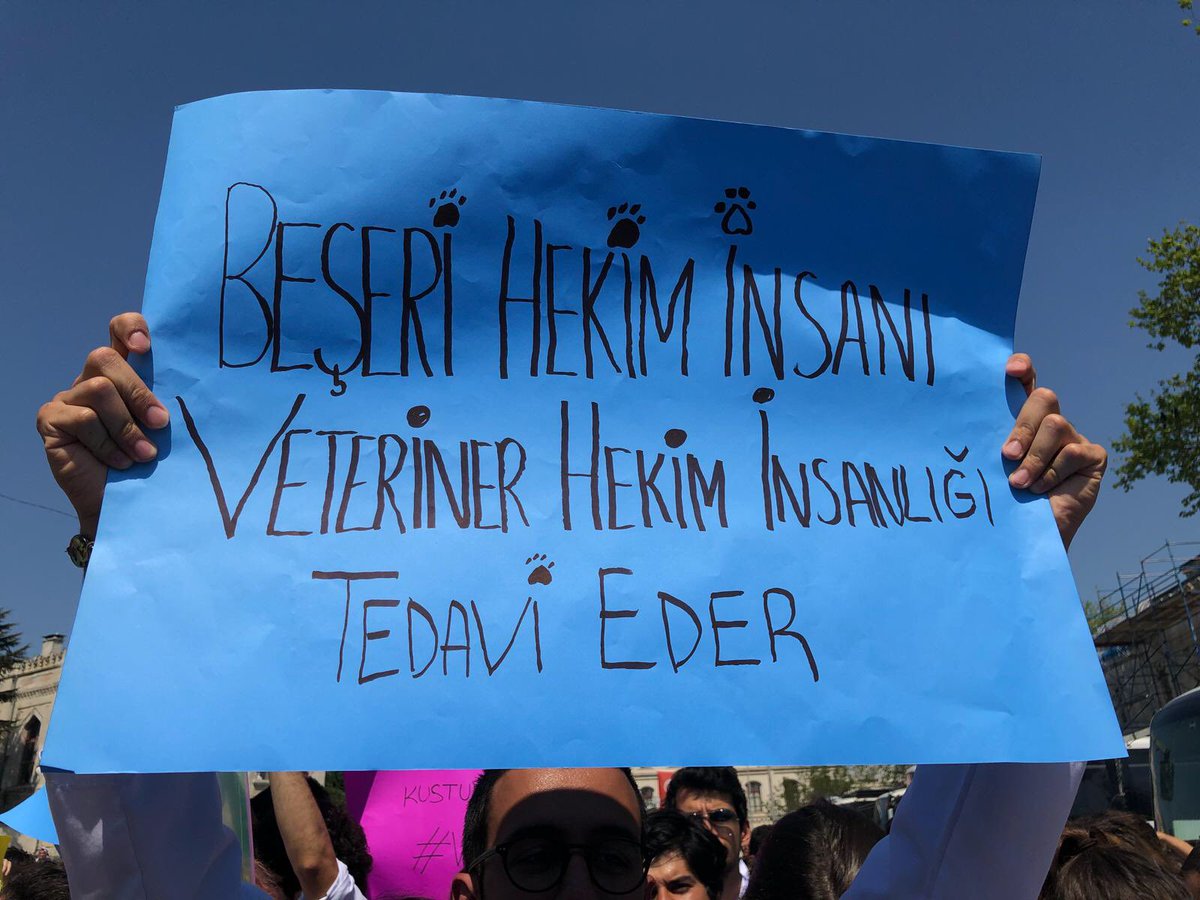 BEŞERİ HEKİM İNSANI
VETERİNER HEKİM İNSANLIĞI
TEDAVİ EDER